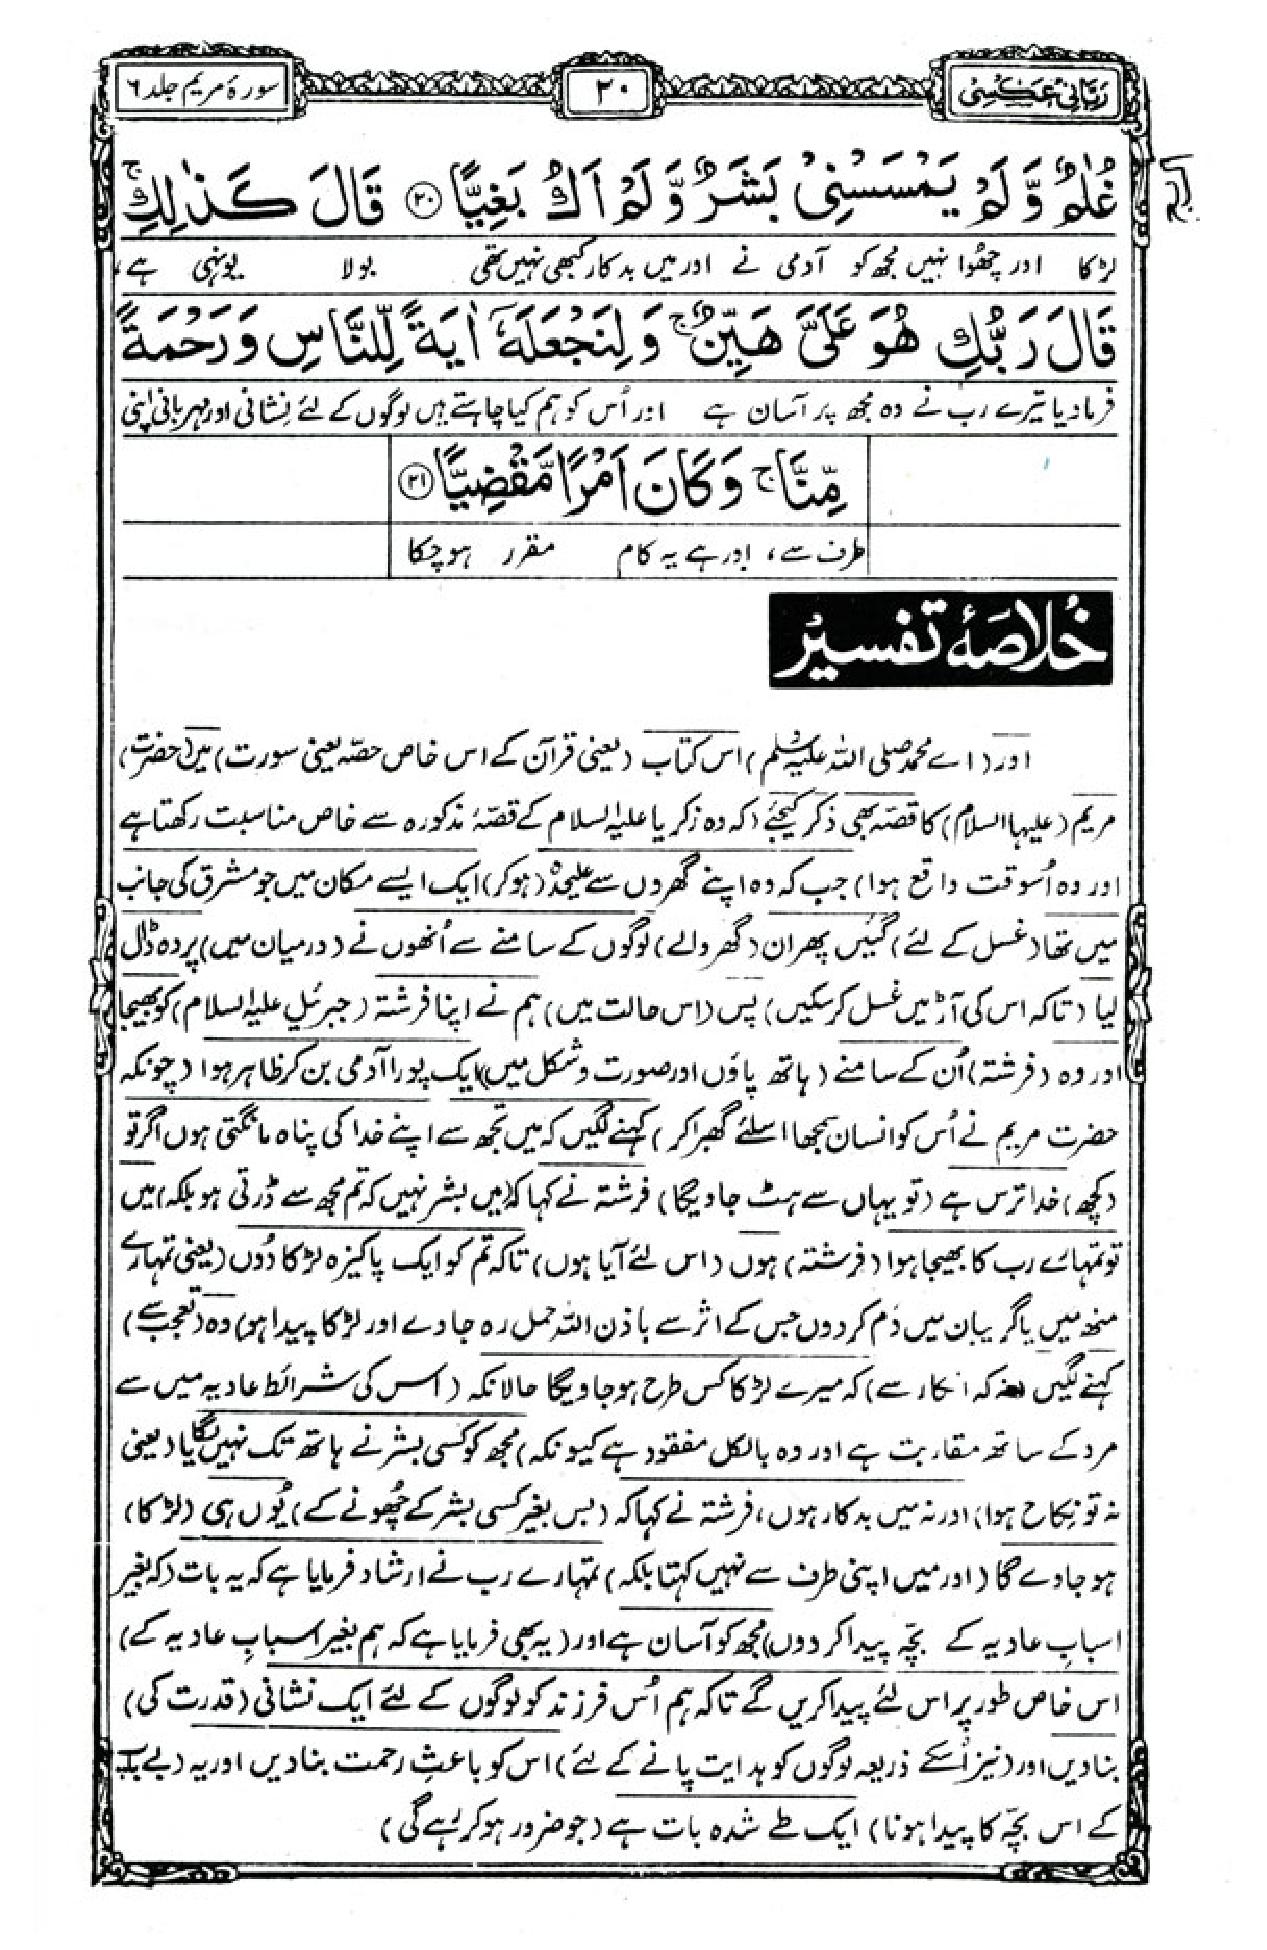 ربّانی عکسی
۲۰
سورۂ مریم جلد ۶
غُلٰمٌ وَّلَمْ یَمْسَسْنِیْ بَشَرٌ وَّلَمْ اَكُ بَغِیًّا ﴿۲۰﴾ قَالَ كَذٰلِكِ ۚ
لڑکا اور چھُوا نہیں مجھ کو آدمی نے اور میں بدکار کبھی نہیں تھی بولا یونہی ہے،
قَالَ رَبُّكِ هُوَ عَلَیَّ هَیِّنٌ ۚ وَلِنَجْعَلَهٗۤ اٰیَةً لِّلنَّاسِ وَرَحْمَةً
فرمادیا تیرے رب نے وہ مجھ پر آسان ہے اور اُس کو ہم کیا چاہتے ہیں لوگوں کے لئے نشانی اور مہربانی اپنی
مِّنَّا ۚ وَكَانَ اَمْرًا مَّقْضِیًّا ﴿۲۱﴾
طرف سے، اور ہے یہ کام مقرر ہوچکا
خُلاصَۂ تفسیر
اور (اے محمد صلی اللہ علیہ وسلم) اس کتاب (یعنی قرآن کے اس خاص حصّہ یعنی سورت) میں (حضرت)
مریم (علیہا السلام) کا قصّہ بھی ذکر کیجئے (کہ وہ زکریا علیہ السلام کے قصّۂ مذکورہ سے خاص مناسبت رکھتا ہے
اور وہ اُسوقت واقع ہوا) جب کہ وہ اپنے گھروں سے علیحدہ (ہوکر) ایک ایسے مکان میں جو مشرق کی جانب
میں تھا (غسل کے لئے) گئیں پھر ان (گھر والے) لوگوں کے سامنے سے اُنھوں نے (درمیان میں) پردہ ڈال
لیا (تاکہ اس کی آڑ میں غسل کرسکیں) پس (اس حالت میں) ہم نے اپنا فرشتہ (جبرئیل علیہ السلام) کو بھیجا
اور وہ (فرشتہ) اُن کے سامنے (ہاتھ پاؤں اور صورت و شکل میں) ایک پورا آدمی بن کر ظاہر ہوا (چونکہ
حضرت مریم نے اُس کو انسان سمجھا اسلئے گھبرا کر) کہنے لگیں کہ میں تجھ سے اپنے خدا کی پناہ مانگتی ہوں اگر تو
(کچھ) خدا ترس ہے (تو یہاں سے ہٹ جاویگا) فرشتہ نے کہا کہ (میں بشر نہیں کہ تم مجھ سے ڈرتی ہو بلکہ) میں
تو تمہارے رب کا بھیجا ہوا (فرشتہ) ہوں (اس لئے آیا ہوں) تاکہ تم کو ایک پاکیزہ لڑکا دُوں (یعنی تمہارے
منھ میں یا گریبان میں دَم کردوں جس کے اثر سے باذن اللہ حمل رہ جاوے اور لڑکا پیدا ہو) وہ (تعجب سے)
کہنے لگیں (نہ کہ انکار سے) کہ میرے لڑکا کس طرح ہوجاویگا حالانکہ (اس کی شرائط عادیہ میں سے
مرد کے ساتھ مقاربت ہے اور وہ بالکل مفقود ہے کیونکہ) مجھ کو کسی بشر نے ہاتھ تک نہیں لگایا (یعنی
نہ تو نکاح ہوا) اور نہ میں بدکار ہوں، فرشتہ نے کہا کہ (بس بغیر کسی بشر کے چُھونے کے) یُوں ہی (لڑکا)
ہوجاوے گا (اور میں اپنی طرف سے نہیں کہتا بلکہ) تمہارے رب نے ارشاد فرمایا ہے کہ یہ بات (کہ بغیر
اسباب عادیہ کے بچّہ پیدا کردوں) مجھ کو آسان ہے اور (یہ بھی فرمایا ہے کہ ہم بغیر اسبابِ عادیہ کے)
اس خاص طور پر اس لئے پیدا کریں گے تاکہ ہم اُس فرزند کو لوگوں کے لئے ایک نشانی (قدرت کی)
بنادیں اور (نیز اُسکے ذریعہ لوگوں کو ہدایت پانے کے لئے) اس کو باعثِ رحمت بنادیں اور یہ (بے باپ
کے اس بچّہ کا پیدا ہونا) ایک طے شدہ بات ہے (جو ضرور ہوکر رہے گی)